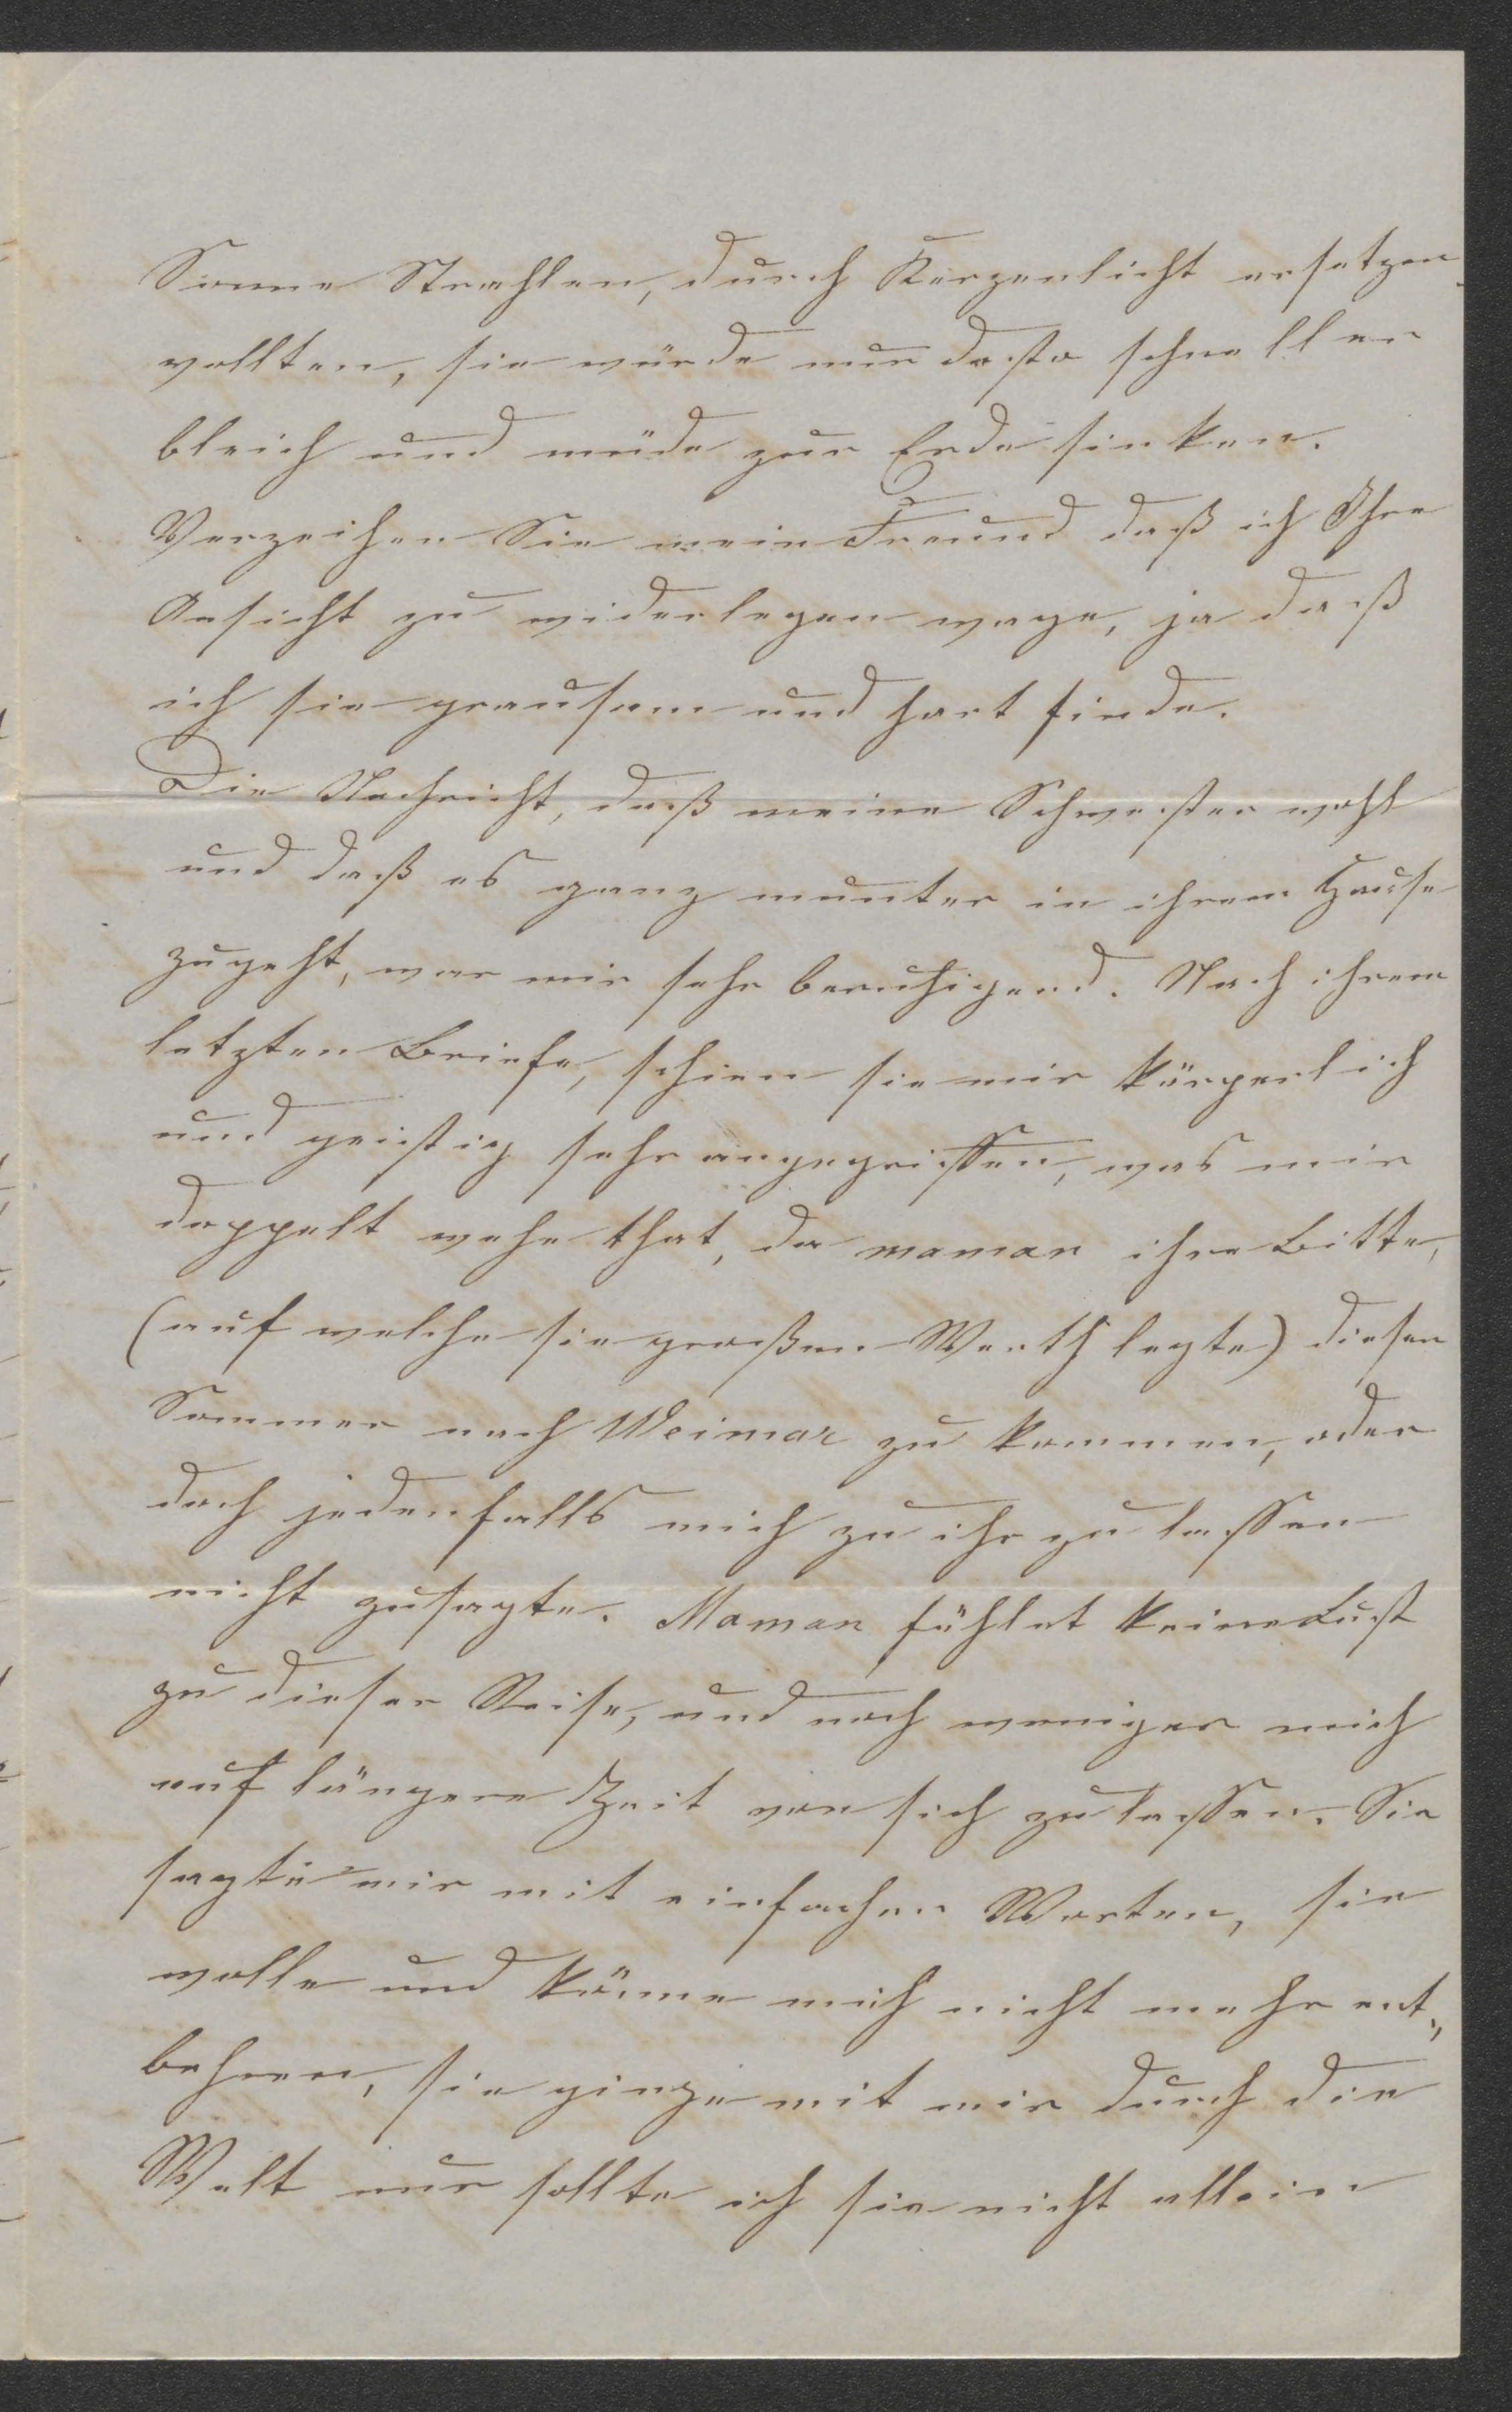 Sonne Strahlen, durch Kerzenlicht ersetzen
wollten, sie würde nur desto schneller
bleich und müde zur Erde sinken.
Verzeihen Sie mein Freund daß ich Ihre
Ansicht zu widerlegen wage, ja daß
ich sie grausam und hart finde.
Die Nachricht, daß meine Schwester wohl
und daß es ganz munter in ihrem Hause
zugeht, war mir sehr beruhigend. Nach ihrem
letzten Briefe, schien sie mir körperlich
und geistig sehr angegriffen, was mir
doppelt wehe that, da maman ihre Bitte,
(auf welche sie großen Werth legte) diesen
Sommer nach Weimar zu kommen, oder
doch jedenfalls mich zu ihr zu lassen
nicht zusagte. Maman fühlet keine Lust
zu dieser Reise, und noch weniger mich
auf längere Zeit von sich zu lassen. Sie
sagte mir mit einfachen Worten, sie
wolle und könne mich nicht mehr ent„
behren, sie ginge mit mir durch die
Welt nur sollte ich sie nicht allein